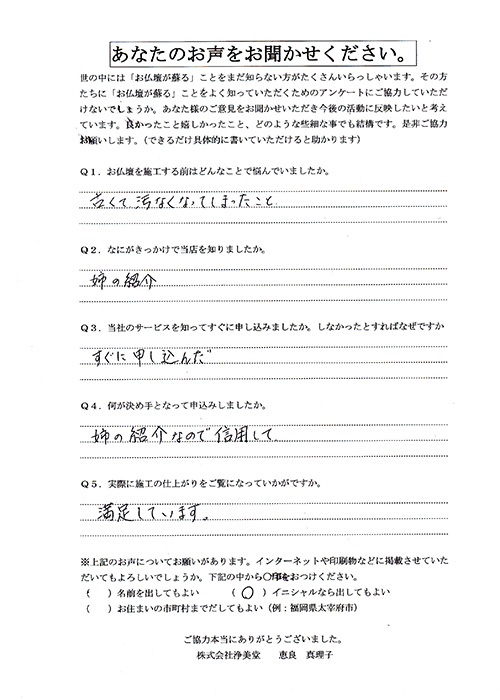 あなたのお声をお聞かせください。
世の中には「お仏壇が蘇る」ことをまだ知らない方がたくさんいらっしゃいます。その方
たちに「お仏壇が蘇る」ことをよく知っていただくためのアンケートにご協力していただ
けないでしょうか。あなた様のご意見をお聞かせいただき今後の活動に反映したいと考え
ています。良かったこと嬉しかったこと、どのような些細な事でも結構です。是非ご協力
お願いします。（できるだけ具体的に書いていただけると助かります）
Q1．お仏壇を施工する前はどんなことで悩んでいましたか。
古くて汚なくなってしまったこと
Q2．なにがきっかけで当店を知りましたか。
姉の紹介
Q3．当社のサービスを知ってすぐに申し込みましたか。しなかったとすればなぜですか
すぐに申し込んだ
Q4．何が決め手となって申込みしましたか。
姉の紹介なので信用して
Q5．実際に施工の仕上がりをご覧になっていかがですか。
満足しています。
※上記のお声についてお願いがあります。インターネットや印刷物などに掲載させていた
だいてもよろしいでしょうか。下記の中から○印をおつけください。
（　）名前を出してもよい　（○）イニシャルなら出してもよい
（　）お住まいの市町村までだしてもよい（例：福岡県太宰府市）
ご協力本当にありがとうございました。
株式会社浄美堂　恵良　真理子